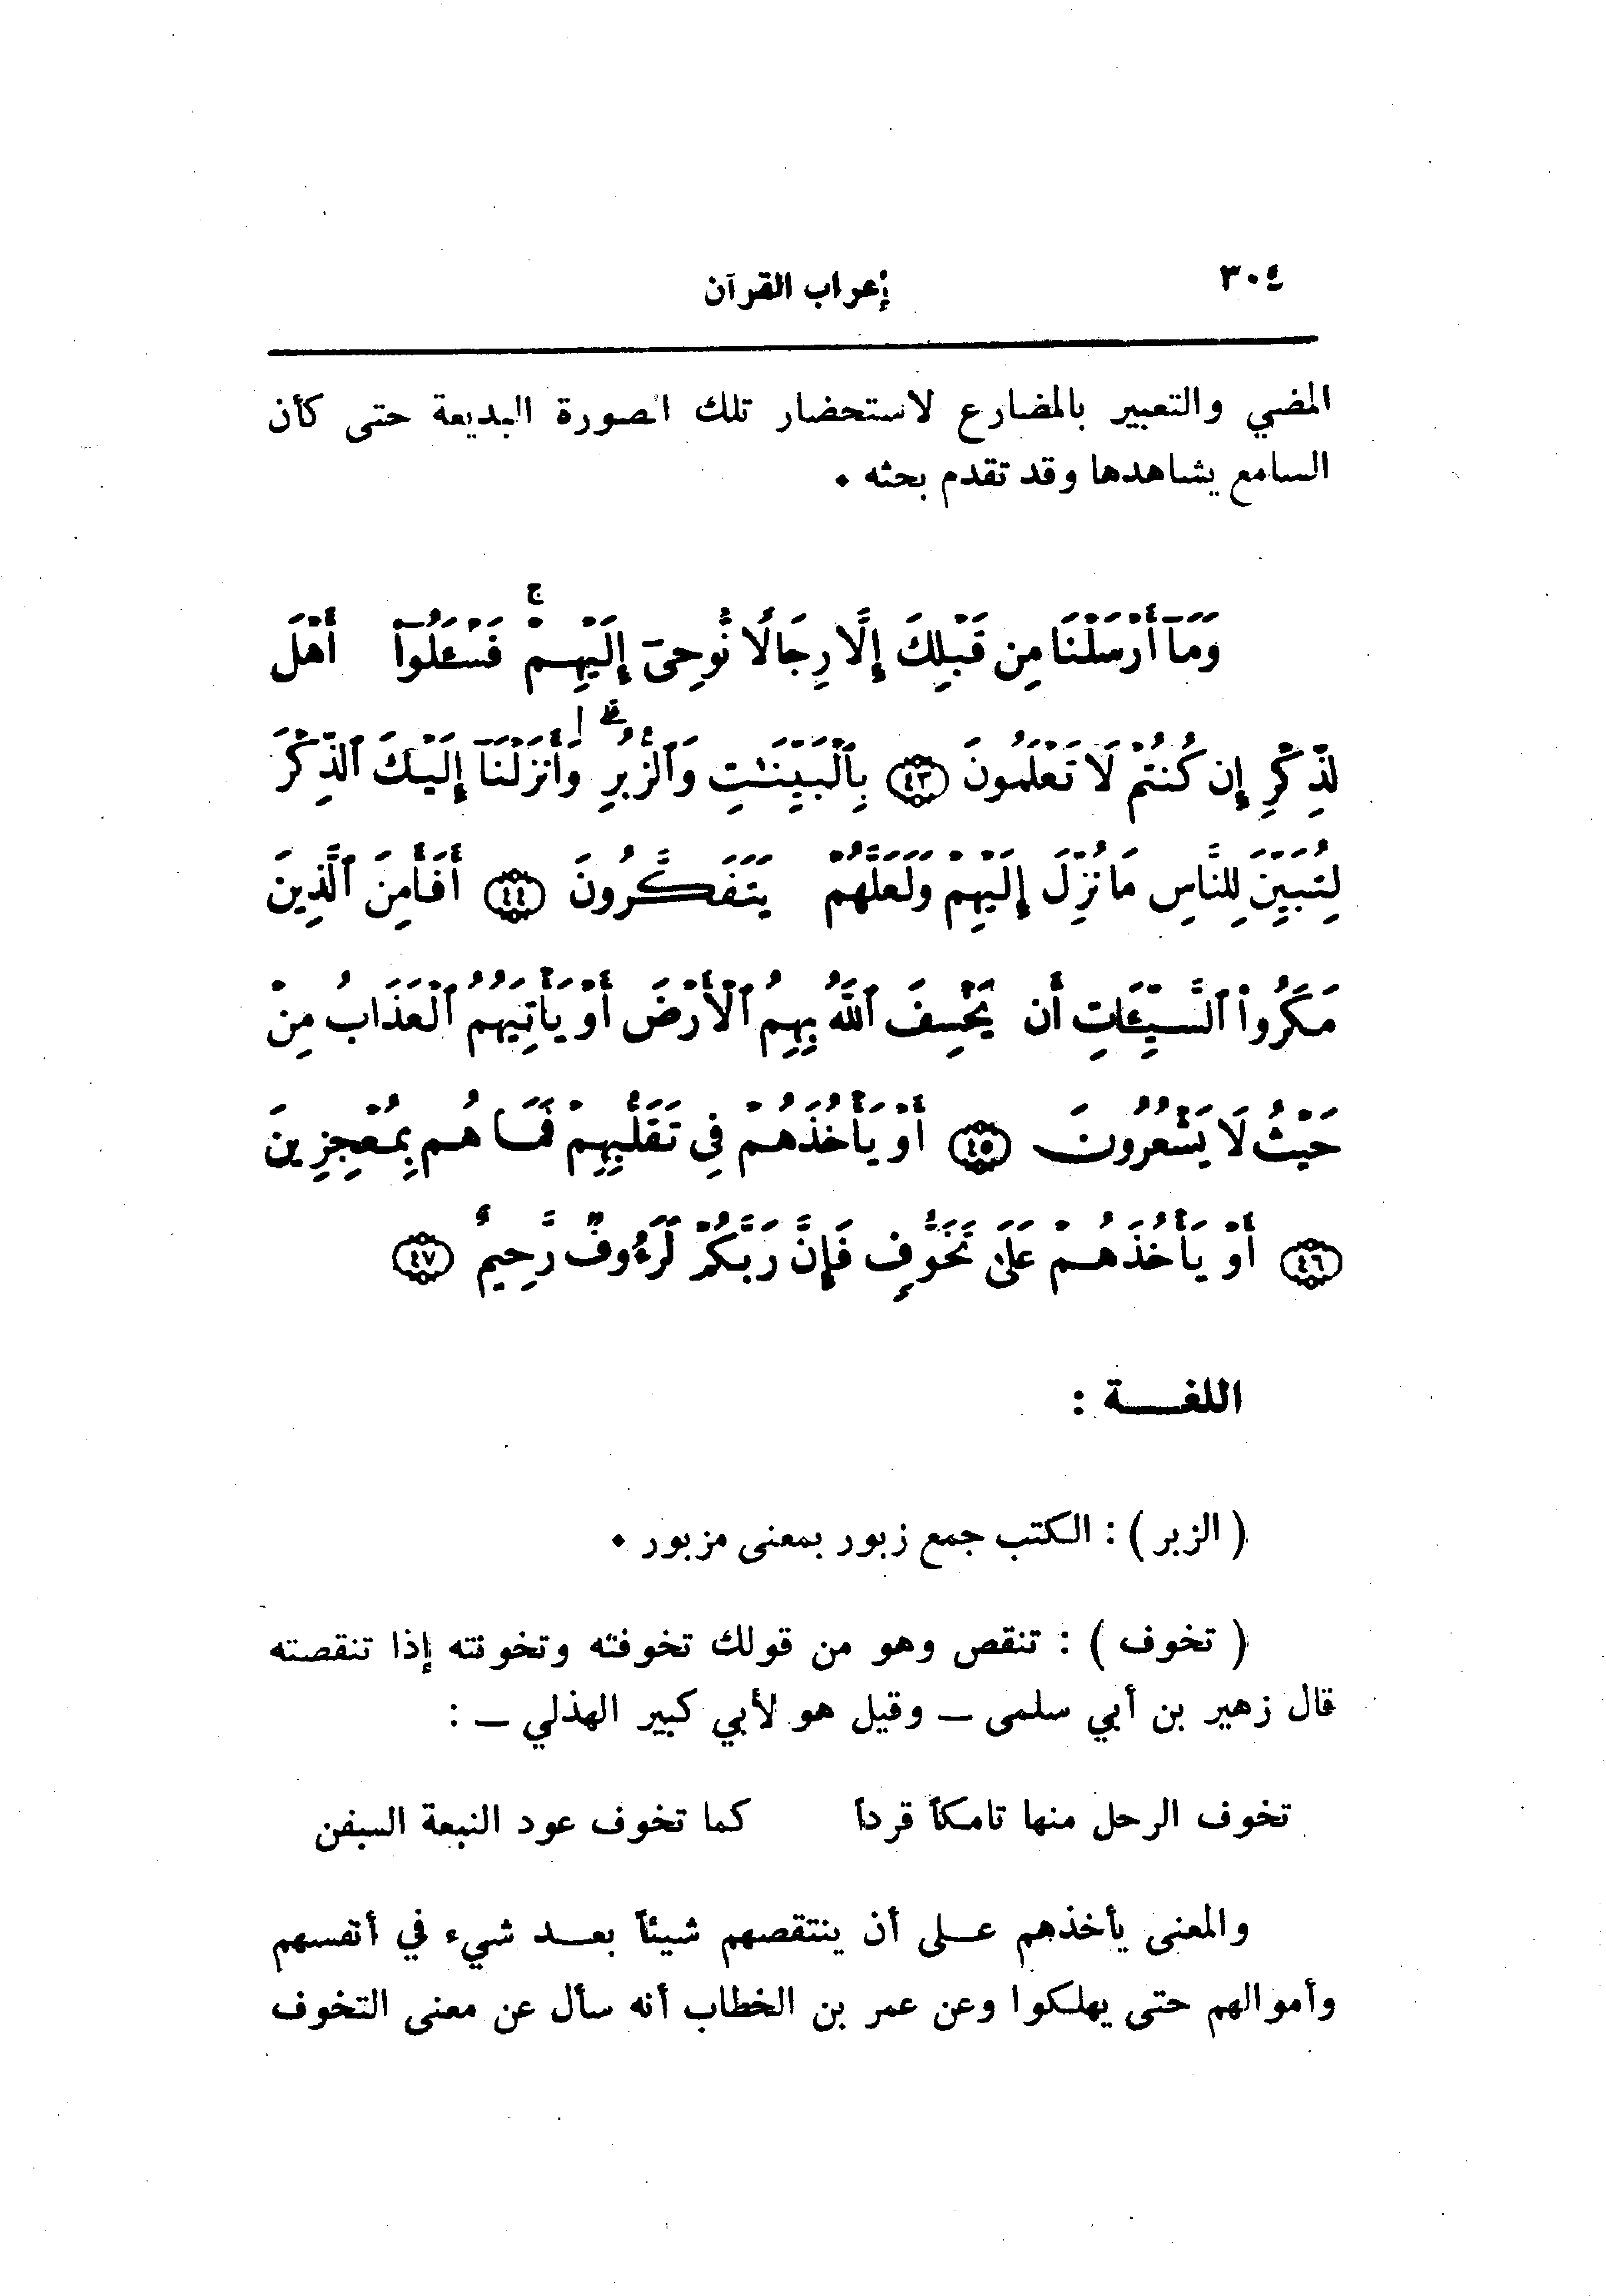 ٣٠٤
إعراب القرآن
المضي والتعبير بالمضارع لاستحضار تلك الصورة البديعة حتى كأن
السامع يشاهدها وقد تقدم بحثه ٠
وَمَآ أَرْسَلْنَا مِن قَبْلِكَ إِلَّا رِجَالًا نُّوحِىٓ إِلَيْهِمْ ۚ فَسْـَٔلُوٓا۟ أَهْلَ
لذِّكْرِ إِن كُنتُمْ لَا تَعْلَمُونَ ﴿٤٣﴾ بِٱلْبَيِّنَـٰتِ وَٱلزُّبُرِ ۗ وَأَنزَلْنَآ إِلَيْكَ ٱلذِّكْرَ
لِتُبَيِّنَ لِلنَّاسِ مَا نُزِّلَ إِلَيْهِمْ وَلَعَلَّهُمْ يَتَفَكَّرُونَ ﴿٤٤﴾ أَفَأَمِنَ ٱلَّذِينَ
مَكَرُوا۟ ٱلسَّيِّـَٔاتِ أَن يَخْسِفَ ٱللَّهُ بِهِمُ ٱلْأَرْضَ أَوْ يَأْتِيَهُمُ ٱلْعَذَابُ مِنْ
حَيْثُ لَا يَشْعُرُونَ ﴿٤٥﴾ أَوْ يَأْخُذَهُمْ فِى تَقَلُّبِهِمْ فَمَا هُم بِمُعْجِزِينَ
﴿٤٦﴾ أَوْ يَأْخُذَهُمْ عَلَىٰ تَخَوُّفٍ فَإِنَّ رَبَّكُمْ لَرَءُوفٌ رَّحِيمٌ ﴿٤٧﴾
اللغـــة :
( الزبر ) : الكتب جمع زبور بمعنى مزبور ٠
( تخوف ) : تنقص وهو من قولك تخوفته وتخونته إذا تنقصته
قال زهير بن أبي سلمى ــ وقيل هو لأبي كبير الهذلي ــ :
تخوف الرحل منها تامكاً قرداً كما تخوف عود النبعة السفن
والمعنى يأخذهم عــلى أن ينتقصهم شيئاً بعــد شيء في أنفسهم
وأموالهم حتى يهلكوا وعن عمر بن الخطاب أنه سأل عن معنى التخوف